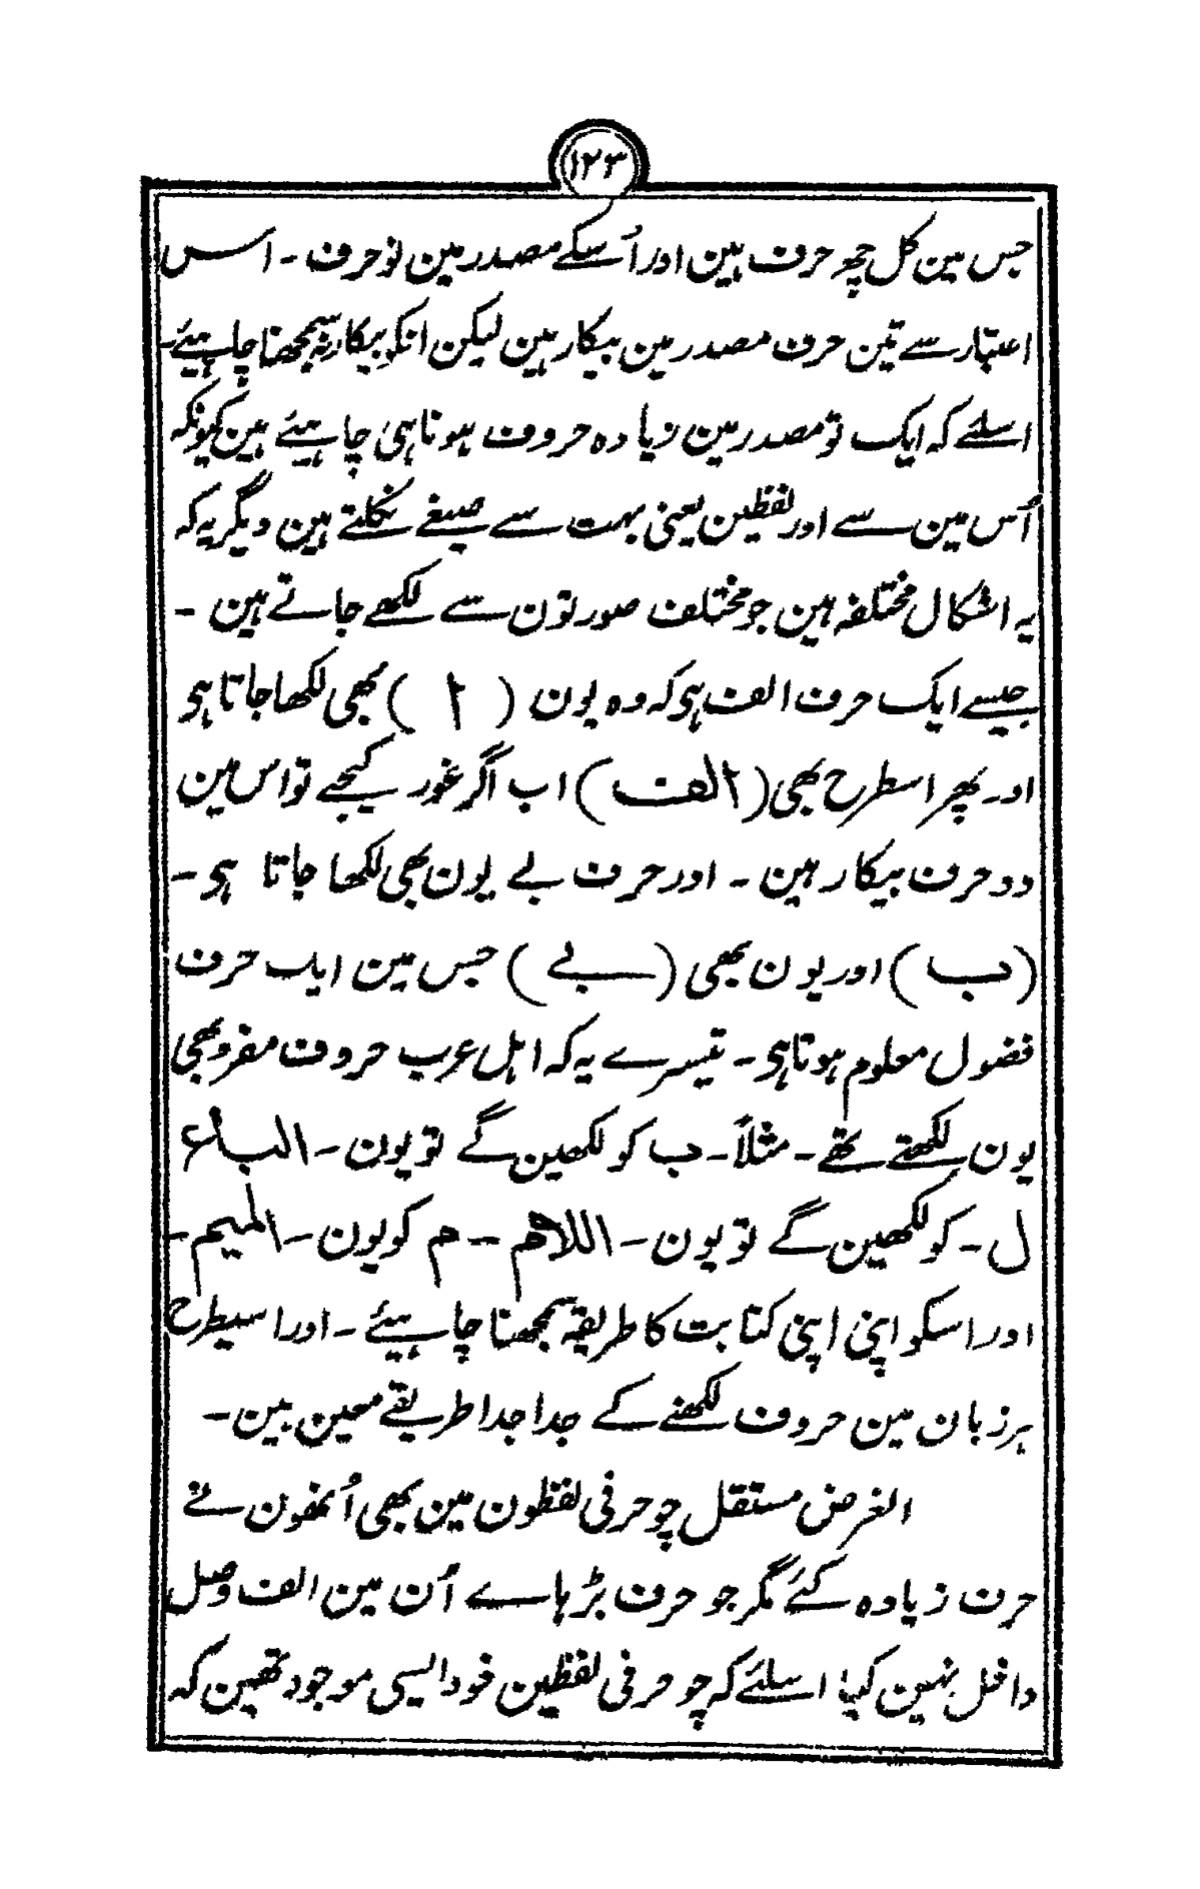 ۱۲۳
جس مین کل چھ حرف ہین اور اُسکے مصدر مین نو حرف - اس
اعتبار سے تین حرف مصدر مین بیکار ہین لیکن انکو بیکار نہ سمجھنا چاہیئے -
اسلئے کہ ایک تو مصدر مین زیادہ حروف ہوناہی چاہیئے ہین کیونکہ
اُس مین سے اور لفظین یعنی بہت سے صیغے نکلتے ہین دیگر یہ کہ
یہ اشکال مختلفہ ہین جو مختلف صورتون سے لکھے جاتے ہین -
جیسے ایک حرف الف ہی کہ وہ یون ( ا ) بھی لکھا جاتا ہی
اور پھر اسطرح بھی (الف) اب اگر غور کیجے تو اس مین
دو حرف بیکار ہین - اور حرف بے یون بھی لکھا جاتا ہی -
(ب) اور یون بھی (بے) جس مین ایک حرف
فضول معلوم ہوتا ہی - تیسرے یہ کہ اہل عرب حروف مفرد بھی
یون لکھتے تھے - مثلاً - ب کو لکھین گے تو یون - الباء
ل - کو لکھین گے تو یون - اللام - م کو یون - المیم -
اور اسکو اپنی اپنی کتابت کا طریقہ سمجھنا چاہیئے - اور اسیطرح
ہر زبان مین حروف لکھنے کے جدا جدا طریقے معین ہین -
الغرض مستقل چو حرفی لفظون مین بھی اُنھون نے
حرف زیادہ کئے مگر جو حرف بڑہاے اُن مین الف وصل
داخل نہین کیا اسلئے کہ چو حرفی لفظین خود ایسی موجود تھین کہ